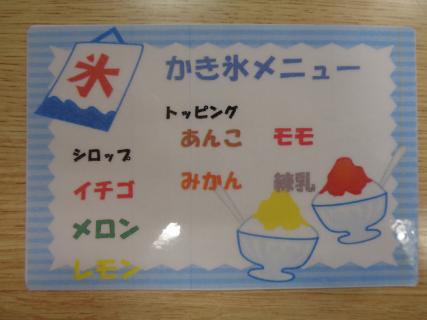 氷
かき氷メニュー
トッピング
あんこ モモ
みかん 練乳
シロップ
イチゴ
メロン
レモン